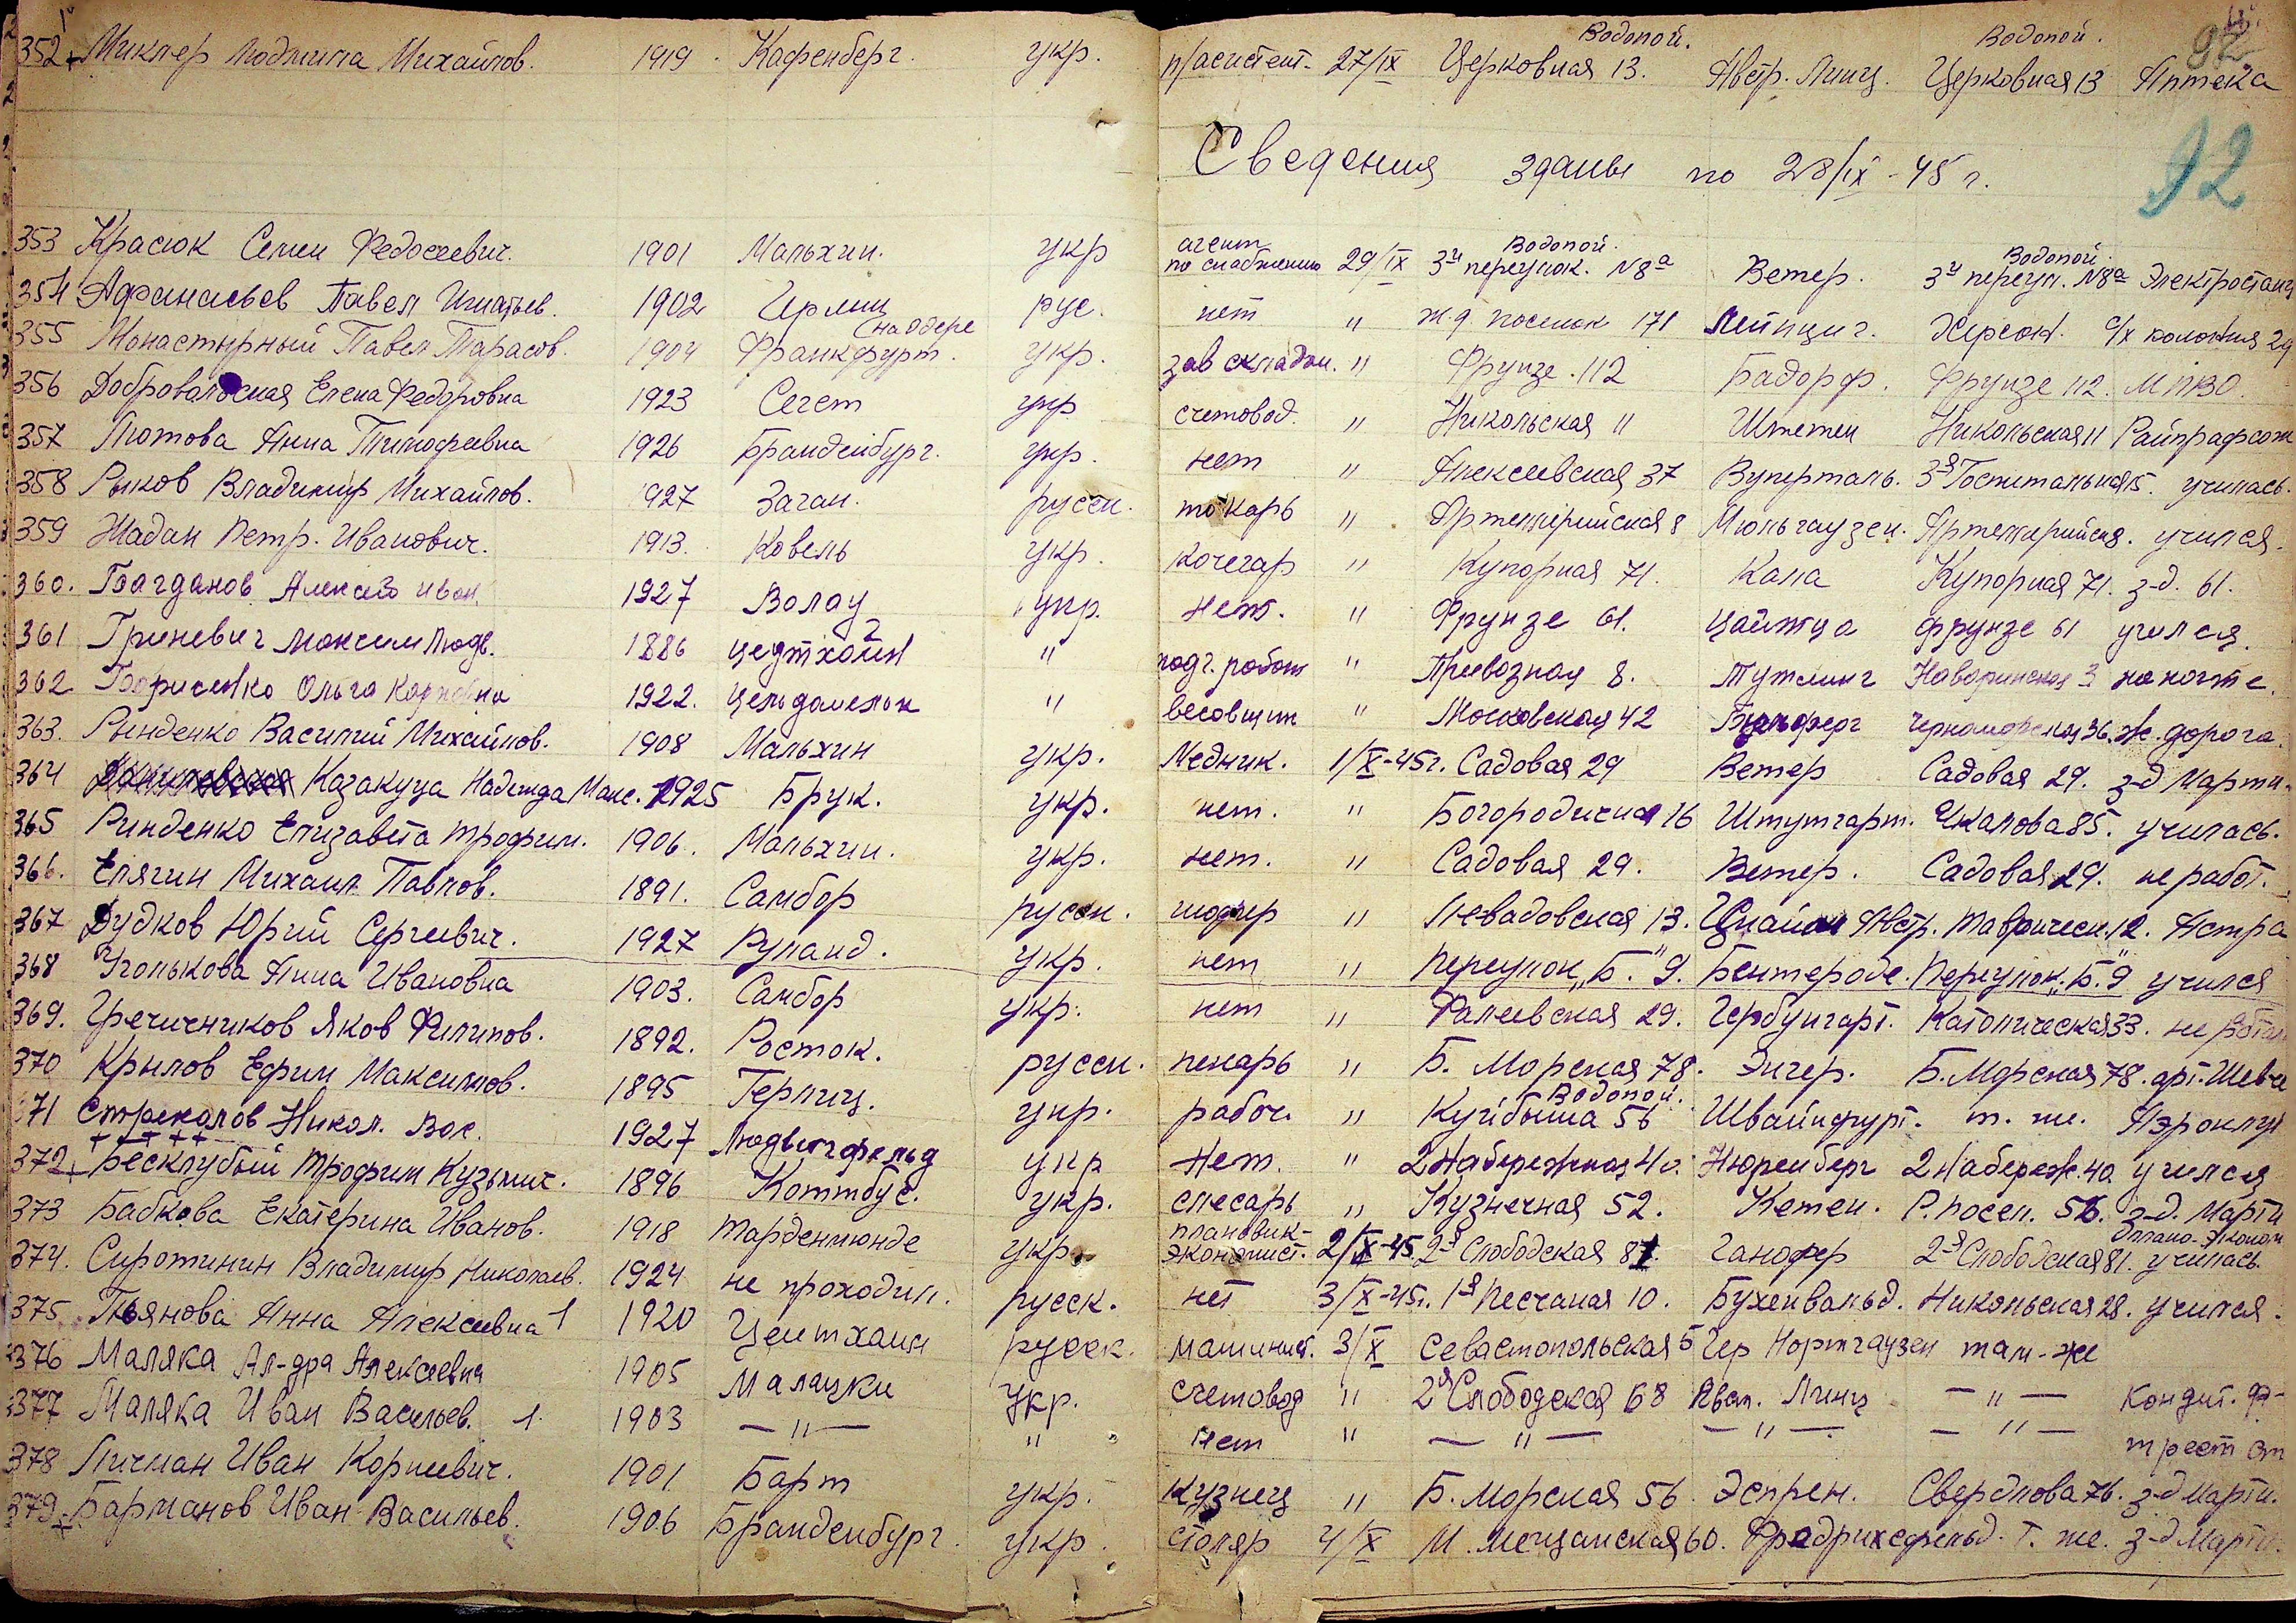 352 Миклер Людмила Михайлов. 1919 Кафенберг. укр. п/асистент 27/IX Церковная 13. Водопой. Австр. Линц. Церковная 13 Водопой. Аптека
92
Сведения зданы по 28/IX-45 г.
353 Красюк Семен Федосеевич. 1901 Мальхин. укр агент по снабжению 29/IX 3й переулок. N8а Водопой. Ветер. 3й переул. N8а Водопой. Электростанц
354 Афанасьев Павел Игнатьев. 1902 рус. нет " ж.д. поселок 171 Лейпциг. Херсон. с/х колония 29
355 Монастырный Павел Тарасов. 1904 Франкфурт. (на Одере укр. зав складом. " Фрунзе. 112 Бадорф. Фрунзе 112. МПВО.
356 Добровальская Елена Федоровна 1923 Сегет укр счетовод. " Никольская 11 Штетен Никольская 11
357 Лютова Анна Тимофеевна 1926 Бранденбург. укр. нет " Алексеевская 37 Вуперталь. 3я Госпитальная 15. училась.
358 Рыков Владимир Михайлов. 1927 Заган. русск. токарь " Артеллерийская 8 Мюльгаузен. Артеллерийск 8. учился.
359 Жадан Петр. Иванович. 1913. Ковель укр. кочегар " Купорная 71. Кала Купорная 71. з-д. 61.
360. Багданов Алексей Иван. 1927 Волау укр. нет. " Фрунзе 61. Цайтца Фрунзе 61 учился.
361 Гриневич Максим Людв. 1886 Цейтхайн " подг. работ " Привозная 8. Тутлинг Наваринская 3 на почте.
362 Борисенко Ольга Карповна 1922. " весовщик " Московская 42 Черноморская 36. Ж. дорога.
363. Рынденко Василий Михайлов. 1908 Мальхин укр. Медник. 1/X-45г. Садовая 29 Ветер Садовая 29. з-д Марти.
364 Казакуца Надежда Макс. 1925 Брук. укр. нет. " Богородичная 16 Штутгарт. Чкалова 85. училась.
365 Ринденко Елизавета Трофим. 1906. Мальхин. укр. нет. " Садовая 29. Ветер. Садовая 29. не работ.
366. Елягин Михаил Павлов. 1891. Самбор русск. шофер " Левадовская 13. Цнайм Австр. Таврическ. 12. Астра
367 Дудков Юрий Сергеевич. 1927 Руланд. укр. нет " Переулок „Б." 9. Бентероде. Переулок „Б." 9 учился
368 Уголькова Анна Ивановна 1903. Самбор укр. нет " Фалеевская 29. Гербунгарт. Католическая 33. не работ
369. Гречичников Яков Филипов. 1892. Росток. русск. пекарь " Б. Морская 78. Энгер. Б. Морская 78. арт. Шевч
370 Крылов Ефим Максимов. 1895 Герлиц. укр. рабоч. " Куйбыша 56 Водопой. Швайнфурт. т. же. Аэроклуб
371 Стреколов Никол. Вас. 1927 Людвигфельд укр нет. " 2 Набережная 40. Нюренберг 2 Набереж. 40 учился
372 Бесклубый Трофим Кузьмич. 1896 Коттбус. укр. слесарь " Кузнечная 52. Кетен. Р. посел. 56. з-д. Марти
373 Бабкова Екатерина Иванов. 1918 Тарденмюнде укр. плановик-экономист. 2/X-45. 2я Слободская 81. Ганофер 2я Слободская 81. плано-эконом училась.
374. Сиротинин Владимир Николаев. 1924 не проходил. русск. нет 3/X-45г. 1я Песчаная 10. Бухенвальд. Никольская 28. учился.
375 Пьянова Анна Алексеевна 1 1920 Цейтхаин русск. машинист. 3/X Севастопольская 5 Гер Нортгаузен там-же
376 Маляка Ал-дра Алексеевна 1905 Малацки укр. счетовод " 2я Слободская 68 Авст. Линц — " — Кондит. ф-
377 Маляка Иван Васильев. 1. 1903 — " — " нет " — " — — " — — " — трест
378 Личман Иван Корнеевич. 1901 Барт укр. кузнец " Б. Морская 56. Эспрен. Свердлова 76. з-д Марти.
379 Барманов Иван Васильев. 1906 Бранденбург. укр. столяр 4/X М. Мещанская 60. Фредрихсфельд. Т. же. з-д Марти.